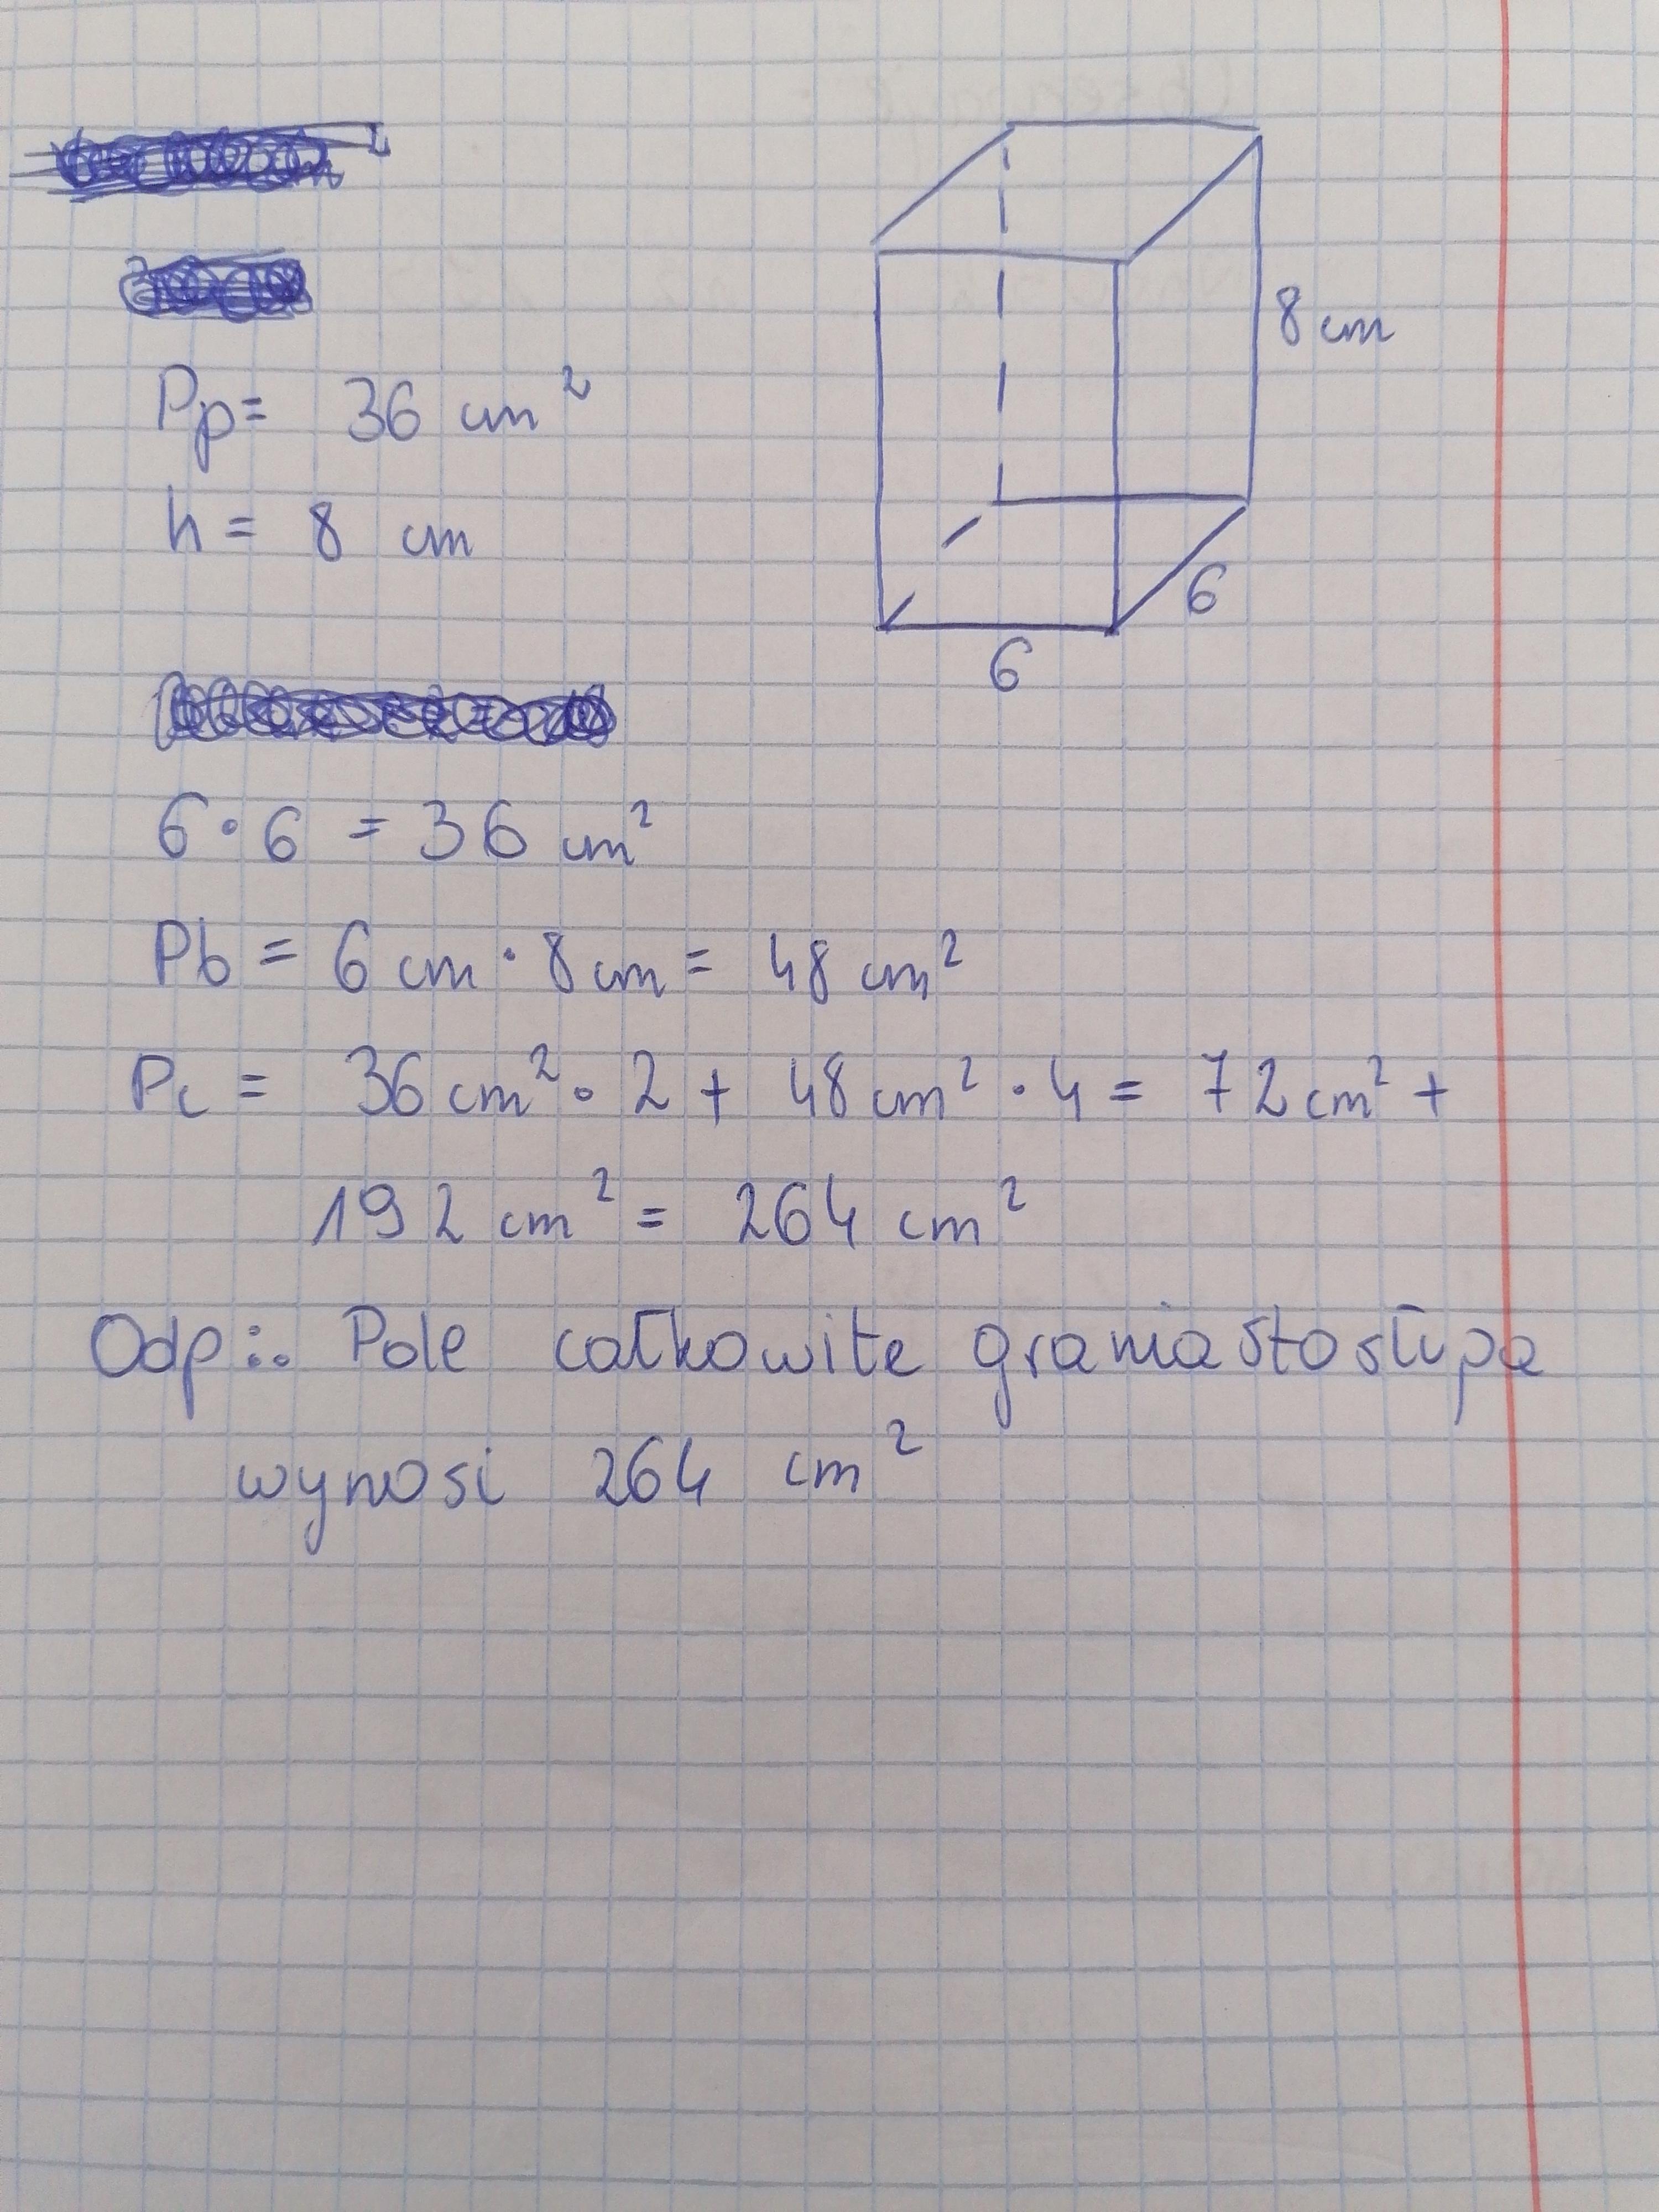 Pp = 36 cm²
h = 8 cm
8 cm
6
6
6 · 6 = 36 cm²
Pb = 6 cm · 8 cm = 48 cm²
Pc = 36 cm² · 2 + 48 cm² · 4 = 72 cm² +
192 cm² = 264 cm²
Odp:. Pole całkowite graniastosłupa
wynosi 264 cm²